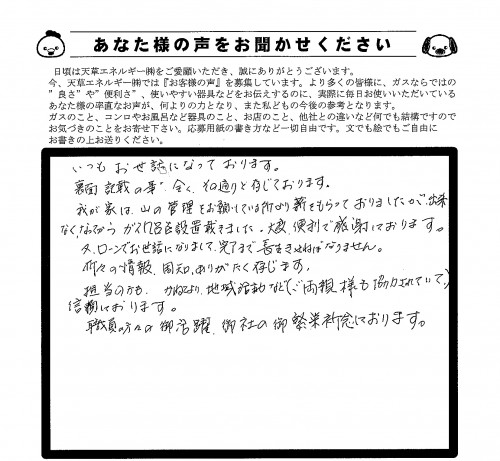 あなた様の声をお聞かせください
日頃は天草エネルギー㈱をご愛顧いただき、誠にありがとうございます。
今、天草エネルギー㈱では『お客様の声』を募集しています。より多くの皆様に、ガスならではの
"良さ"や"便利さ"、使いやすい器具などをお伝えするのに、実際に毎日お使いいただいている
あなた様の率直なお声が、何よりの力となり、また私どもの今後の参考となります。
ガスのこと、コンロやお風呂など器具のこと、お店のこと、他社との違いなど何でも結構ですので
お気づきのことをお寄せ下さい。応募用紙の書き方など一切自由です。文でも絵でもご自由に
お書きの上お送りください。
いつもお世話になっております。
裏面記載の事、全く、その通りと存じております。
我が家は、山の管理をお願いしている所から薪をもらっておりましたが、出来
なくなり ガス 設置戴きました。大変、便利で感謝しております。
又、ローンでお世話になりまして、完了まで長生きせねばなりません。
の情報、周知、ありがたく存じます。
担当の方も、かねてより、地域活動など(ご両親様も協力されていて、)
信頼しております。
職員の方々の御活躍、御社の御繁栄祈念しております。